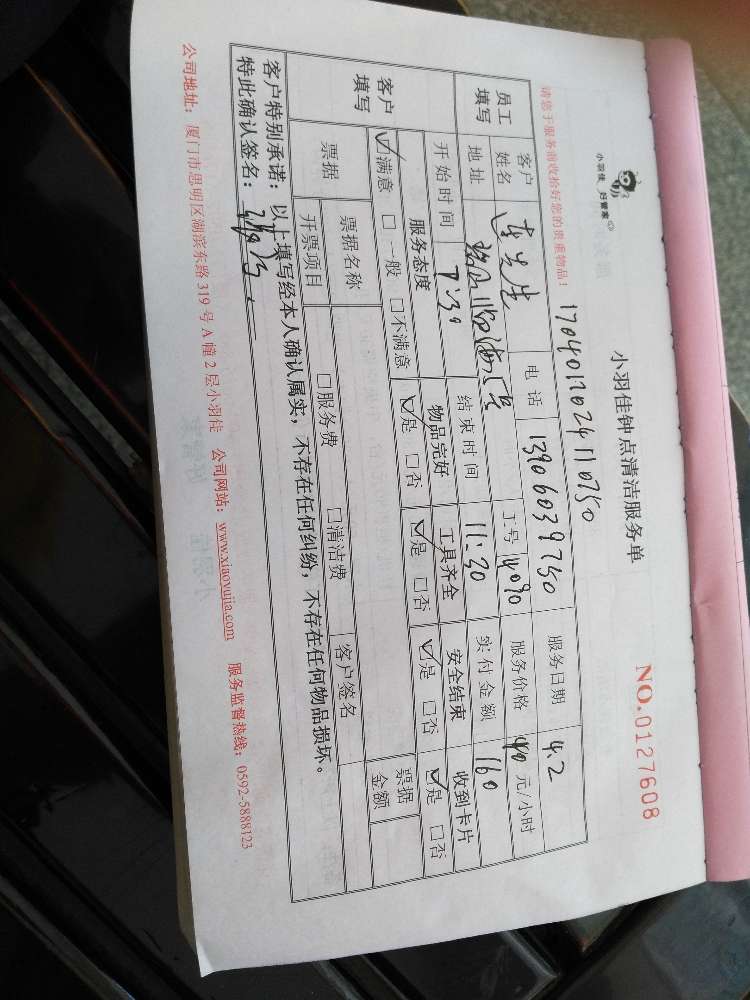 小羽佳 好管家
小羽佳钟点清洁服务单
NO.0127608
1704017024110750
请您于服务前收拾好您的贵重物品！
员工填写 客户姓名 李先生 电话 13906039750 服务日期 4.2
地址 工号 14090 服务价格 40 元/小时
开始时间 7:30 结束时间 11:30 实付金额 160
客户填写 服务态度 物品完好 工具齐全 安全结束 收到卡片
☑满意 □一般 □不满意 ☑是 □否 ☑是 □否 ☑是 □否 ☑是 □否
票据 票据名称 票据金额
开票项目 □服务费 □清洁费 客户签名
客户特别承诺：以上填写经本人确认属实，不存在任何纠纷，不存在任何物品损坏。
特此确认签名：
公司地址：厦门市思明区湖滨东路319号A幢2层小羽佳 公司网站：www.xiaoyujia.com 服务监督热线：0592-5888123